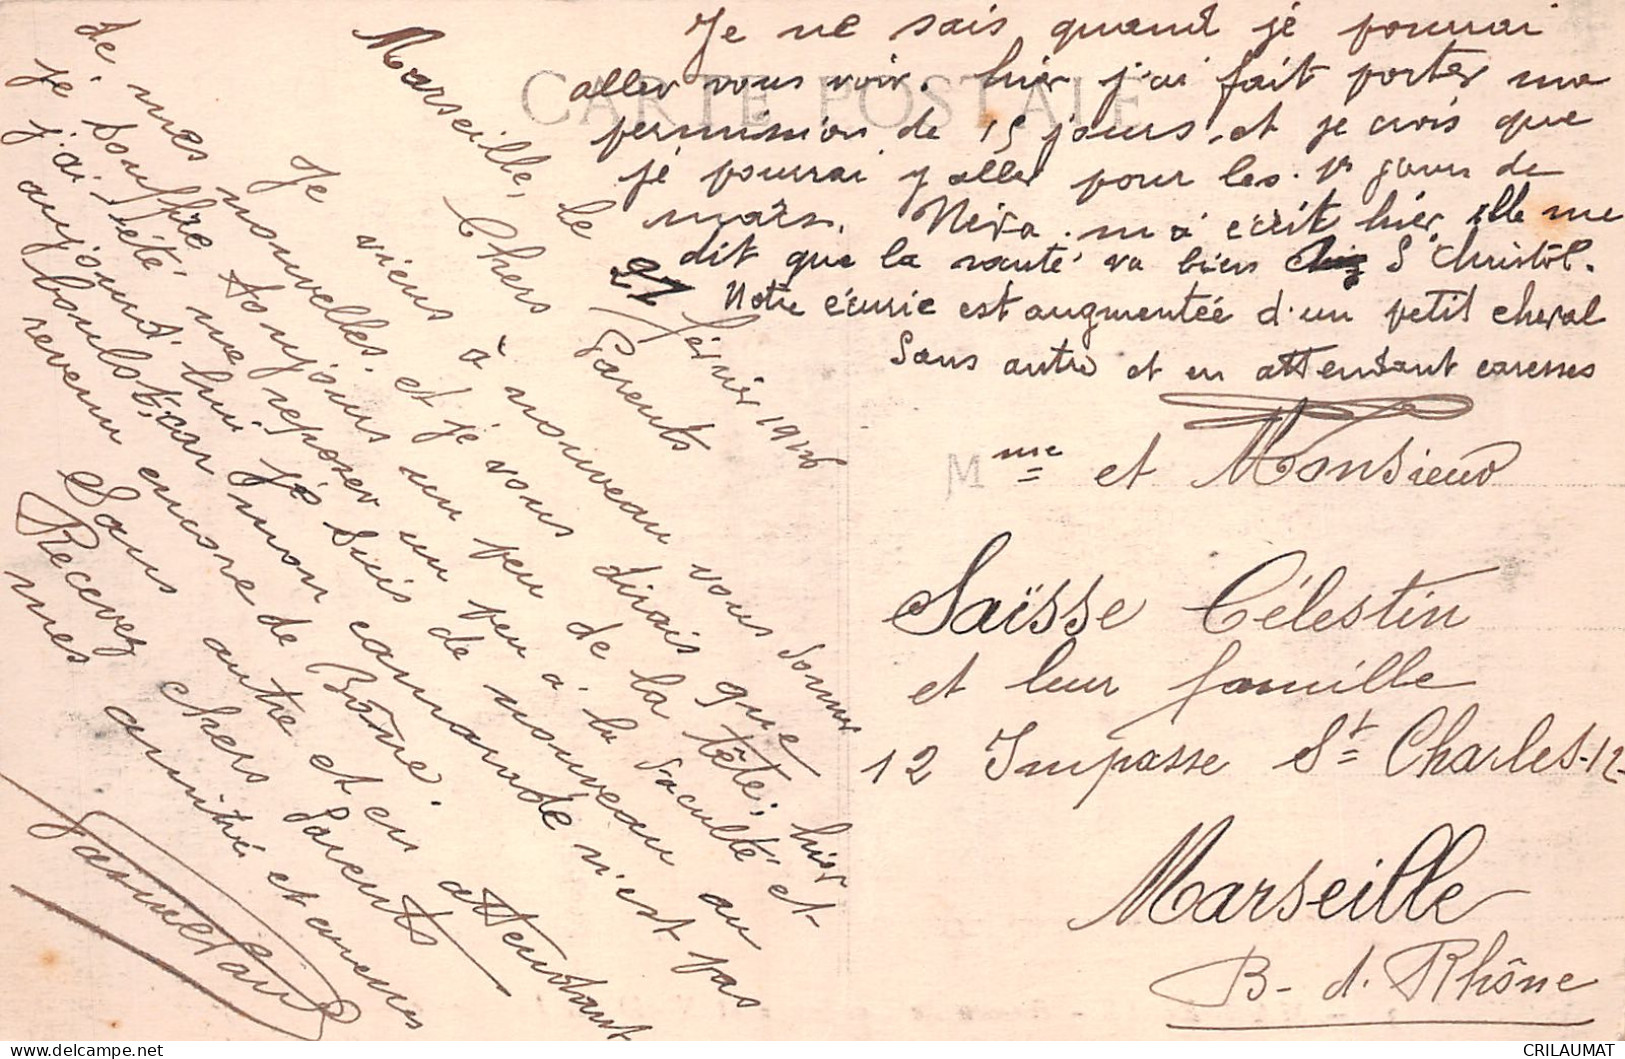 Marseille, le 21 Février 1926
Chers Parents
Je viens à nouveau vous donner
de mes nouvelles. et je vous dirais que
je souffre toujours un peu de la tête; hier
j'ai été me reposer un peu à la Faculté et
aujourd'hui je suis de nouveau au
boulot; car mon camarade n'est pas
revenu encore de Bône.
Sans autre et en attendant
Recevez chers Parents
mes amitiés et caresses
Je ne sais quand je pourrai
aller vous voir. hier j'ai fait porter ma
permission de 15 jours, et je crois que
je pourrai y aller pour les 1rs jours de
mars. m'a écrit hier, elle me
dit que la santé va bien S' Christol.
Notre écurie est augmentée d'un petit cheval
Sans autre et en attendant caresses
CARTE POSTALE
Mme et Monsieur
Saïsse Célestin
et leur famille
12 Impasse St Charles-12-
Marseille
B. d. Rhône
CRILAUMAT